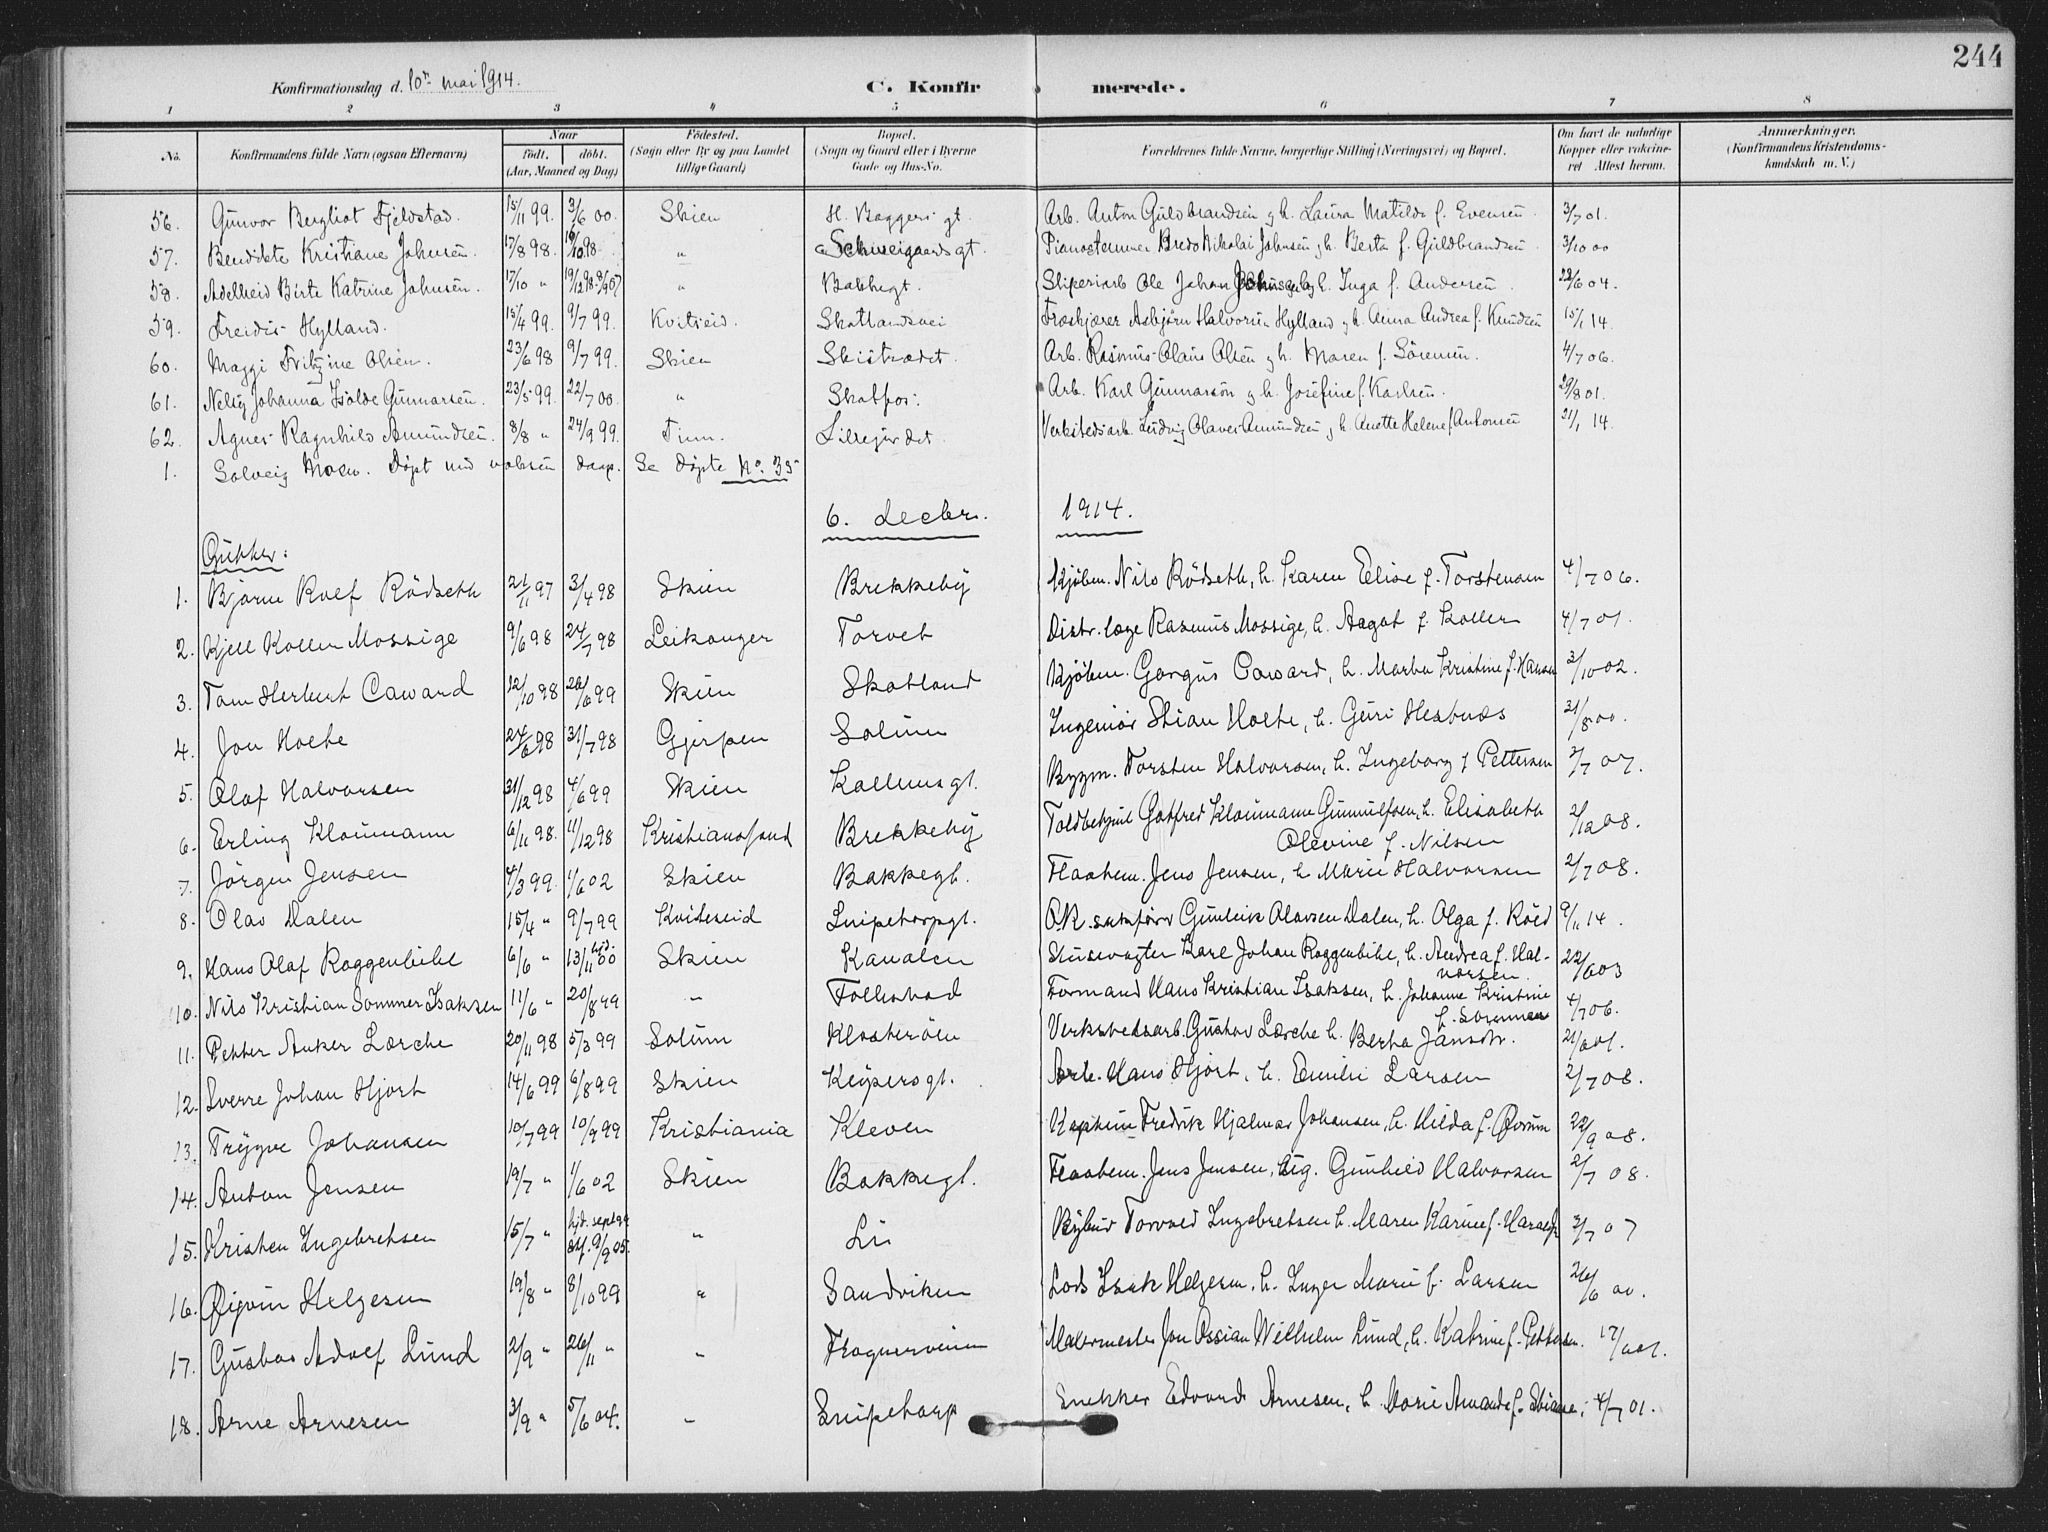 244
Konfirmationsdag d. 10de mai 1914.
C. Konfirmerede.
1 2 3 4 5 6 7 8
No. Konfirmandens fulde Navn (ogsaa Efternavn) Naar født. døbt. (Aar, Maaned og Dag) Födested. (Sogn eller By og paa Landet tillige Gaard) Bopæl. (Sogn og Gaard eller i Byerne Gade og Hus-No. Forældrenes fulde Navne, borgerlige Stilling (Næringsvei) og Bopæl. Om havt de naturlige Kopper eller vakcineret Attest herom. Anmærkninger. (Konfirmandens Kristendomskundskab m. V.)
56. Gunvor Bergliot Fjeldstad. 15/11 99. 3/6 00. Skien H. Baggers gt. Arb. Anton Guldbrandsen g h. Laura Matilde f. Evensen 3/7 01.
57. Bendikte Kristiane Johnsen. 17/8 98. 16/10 98 " Schweigaards gt. Pianostemmer Bredo Nikolai Johnsen g h. Berta f. Guldbrandsen 3/10 00
58. Adelheid Birte Katrine Johnsen. 17/10 " 19/12 98 " Bakkegt. Sliperiarb Ole Johan Johnsen g h. Inga f. Andersen 22/6 04.
59. Freidis Hylland. 15/4 99. 9/7 99. Kvitseid. Skotlandsvei Træskjærer Asbjørn Halvorsen Hylland g h. Anna Andrea f. Knudsen 15/1 14.
60. Maggi Fritzine Olsen. 23/6 98 9/7 99. Skien Skistrædet. Arb. Rasmus Olaus Olsen g h. Maren f. Sörensen. 4/7 06.
61. Nelsy Johanna Isolde Gunnarsen. 23/5 99. 22/7 00. " Skotfos. Arb. Karl Gunnarson g h. Josefine f. Karlsen. 29/8 01.
62. Agnes Ragnhild Amundsen. 8/8 " 24/9 99. Tinn. Lilregjærdet. Verkstedsarb. Ludvig Olaves Amundsen g h. Anette Helene f. Antonsen 21/1 14.
1. Solveig Moen. Døpt ved voksen daap. Se døpte No. 35
6. decbr. 1914.
Gutter:
1. Bjørn Rolf Rödseth 21/11 97 3/4 98 Skien Brekkeby Kjøbm. Nils Rödseth, h. Karen Elise f. Torstensen 4/7 06.
2. Kjell Koller Mossige 9/6 98 24/7 98 Leikanger Torvet Distr. læge Rasmus Mossige, h. Aagot f. Koller 4/7 01.
3. Tom Herbert Caward 12/10 98 26/6 99 Skien Skotland Kjöbm. Gorgus Caward, h. Marta Kristine f. Hansen 3/10 02.
4. Jon Holte 24/6 98 31/7 98 Gjerpen Solum Ingeniör Stian Holte, h. Guri Hestnæs 31/8 00.
5. Olaf Halvorsen 31/12 98 4/6 99 Skien Kallumsgt. Bygm. Torsten Halvorsen, h. Ingeborg f Pettersen 2/7 07.
6. Erling Kloumann 6/11 98. 11/12 98 Kristiansand Brekkeby Toldbetjent Gotfred Kloumann Gunnulfsen, h. Elisabeth
Olevine f. Nilsen 2/12 08.
7. Jörgen Jensen 4/3 99. 1/6 02 Skien Bakkegt. Flaahem. Jens Jensen, h Marie Halvorsen 2/7 08.
8. Olav Dalen 15/4 " 9/7 99 Kviteseid Snipetorpgt. O.R. saxförer Gunleik Olavsen Dalen, h. Olga f. Röed 9/11 14.
9. Hans Olaf Roggenbihl 6/6 " 13/11 00 Skien Kanalen Slusevogter Karl Johan Roggenbihl, h. Andrea f. Halvorsen. 22/6 03
10. Nils Kristian Sommer Isaksen 11/6 " 20/8 99 " Follestad Formand Hans Kristian Isaksen, h. Johanne Kristine
f. Sommer 4/7 06.
11. Petter Anker Lærche 20/11 98 5/3 99 Solum Klosteröen Verkstedsarb. Gustav Lærche h. Berta Jansdtr. 21/6 01.
12. Sverre Johan Hjort 14/6 99 6/8 99 Skien Keysersgt. Arb. Hans Hjort, h. Emilie Larsen 2/7 08.
13. Trygve Johansen 10/7 99 10/9 99 Kristiania Kleven Kaptein Fredrik Hjalmar Johansen, h. Hilda f. Øvrum 22/9 08.
14. Anton Jensen 19/7 " 1/6 02 Skien Bakkegt. Flaahem. Jens Jensen, Gunhild Halvorsen 2/7 08.
15. Kristen Ingebretsen 15/7 " hjd. sept 99 stf. 9/9 05. " Li Bybud Torvald Ingebretsen h. Maren Karine f. Haraldsen 2/7 07
16. Øivin Helgesen 19/8 " 8/10 99 " Sandviken Lods Isak Helgesen, h. Inger Marie f. Larsen 26/6 00.
17. Gustav Adolf Lund 2/9 " 26/11 " " Frognerveien Malermester Jon Ossian Wilhelm Lund, h. Katrine f. Pettersen. 17/6 01.
18. Arne Arnesen 3/9 " 5/6 04. " Snipetorp Snekker Edvard Arnesen, h. Marie Amanda f. 4/7 01.